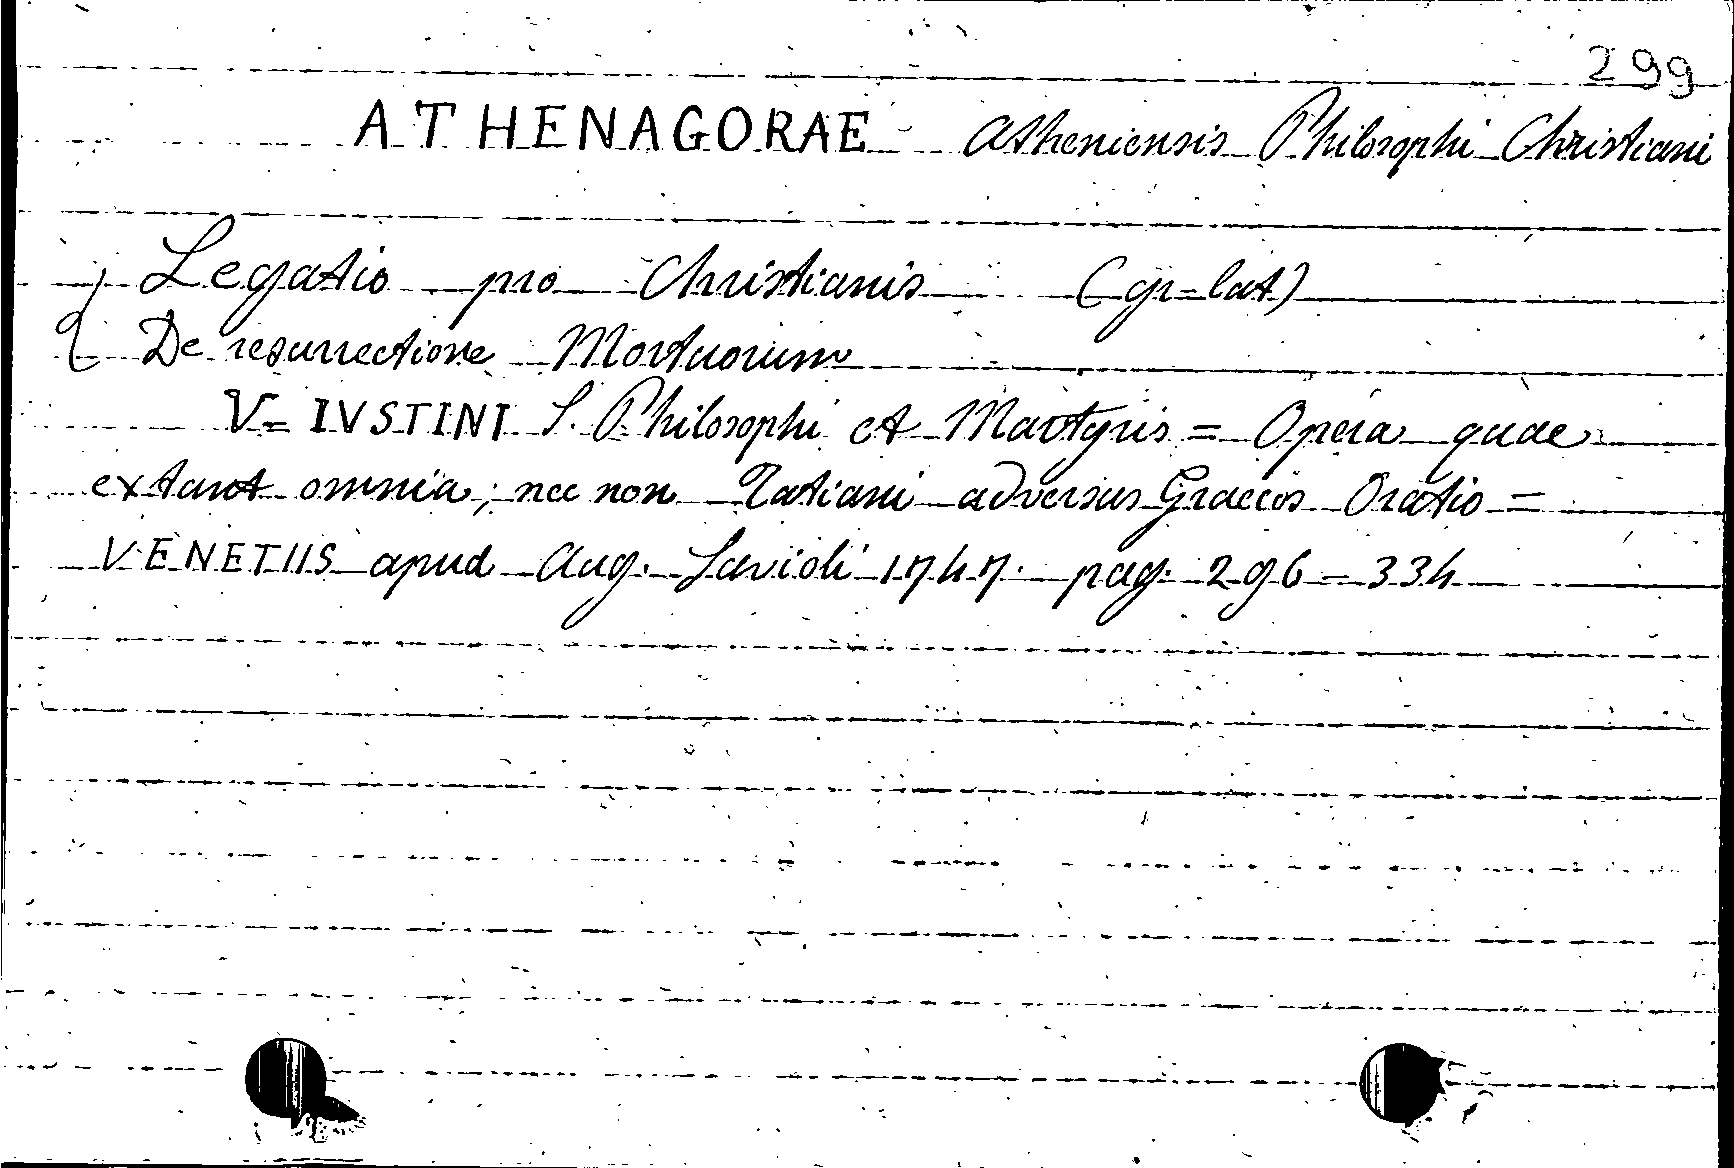 299
ATHENAGORAE Atheniensis Philosophi Christiani
Legatio pro Christianis (gr-lat)
De resurrectione Mortuorum
V= IVSTINI S. Philosophi et Martyris = Opera quae
extant omnia; nec non Tatiani adversus Graecos Oratio =
VENETIIS apud Aug. Savioli 1747. pag. 296-334